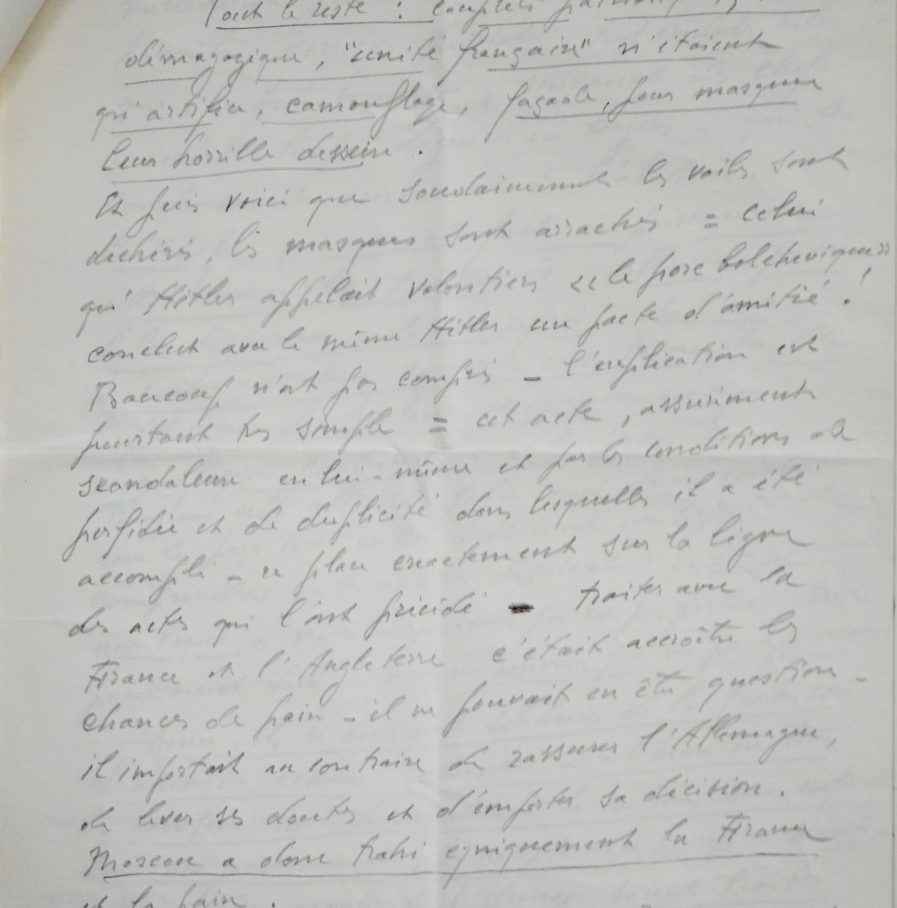 Tout le reste : couplets
démagogique, "unité française" n'étaient
qu'artifice, camouflage, façade, pour masquer
leur horrible dessein.
Et puis voici que soudainement les voiles sont
déchirés, les masques sont arrachés = celui
qu'Hitler appelait volontiers « le porc bolchevique »
conclut avec le même Hitler un pacte d'amitié !
Beaucoup n'ont pas compris - l'explication est
pourtant très simple = cet acte, assurément
scandaleux en lui-même et par les conditions de
perfidie et de duplicité dans lesquelles il a été
accompli - se place exactement sur la ligne
des actes qui l'ont précédé - traiter avec la
France et l'Angleterre c'était accroître les
chances de paix - il ne pouvait en être question -
il importait au contraire de rassurer l'Allemagne,
de lever ses doutes et d'emporter sa décision.
Moscou a donc trahi cyniquement la France
et la paix.